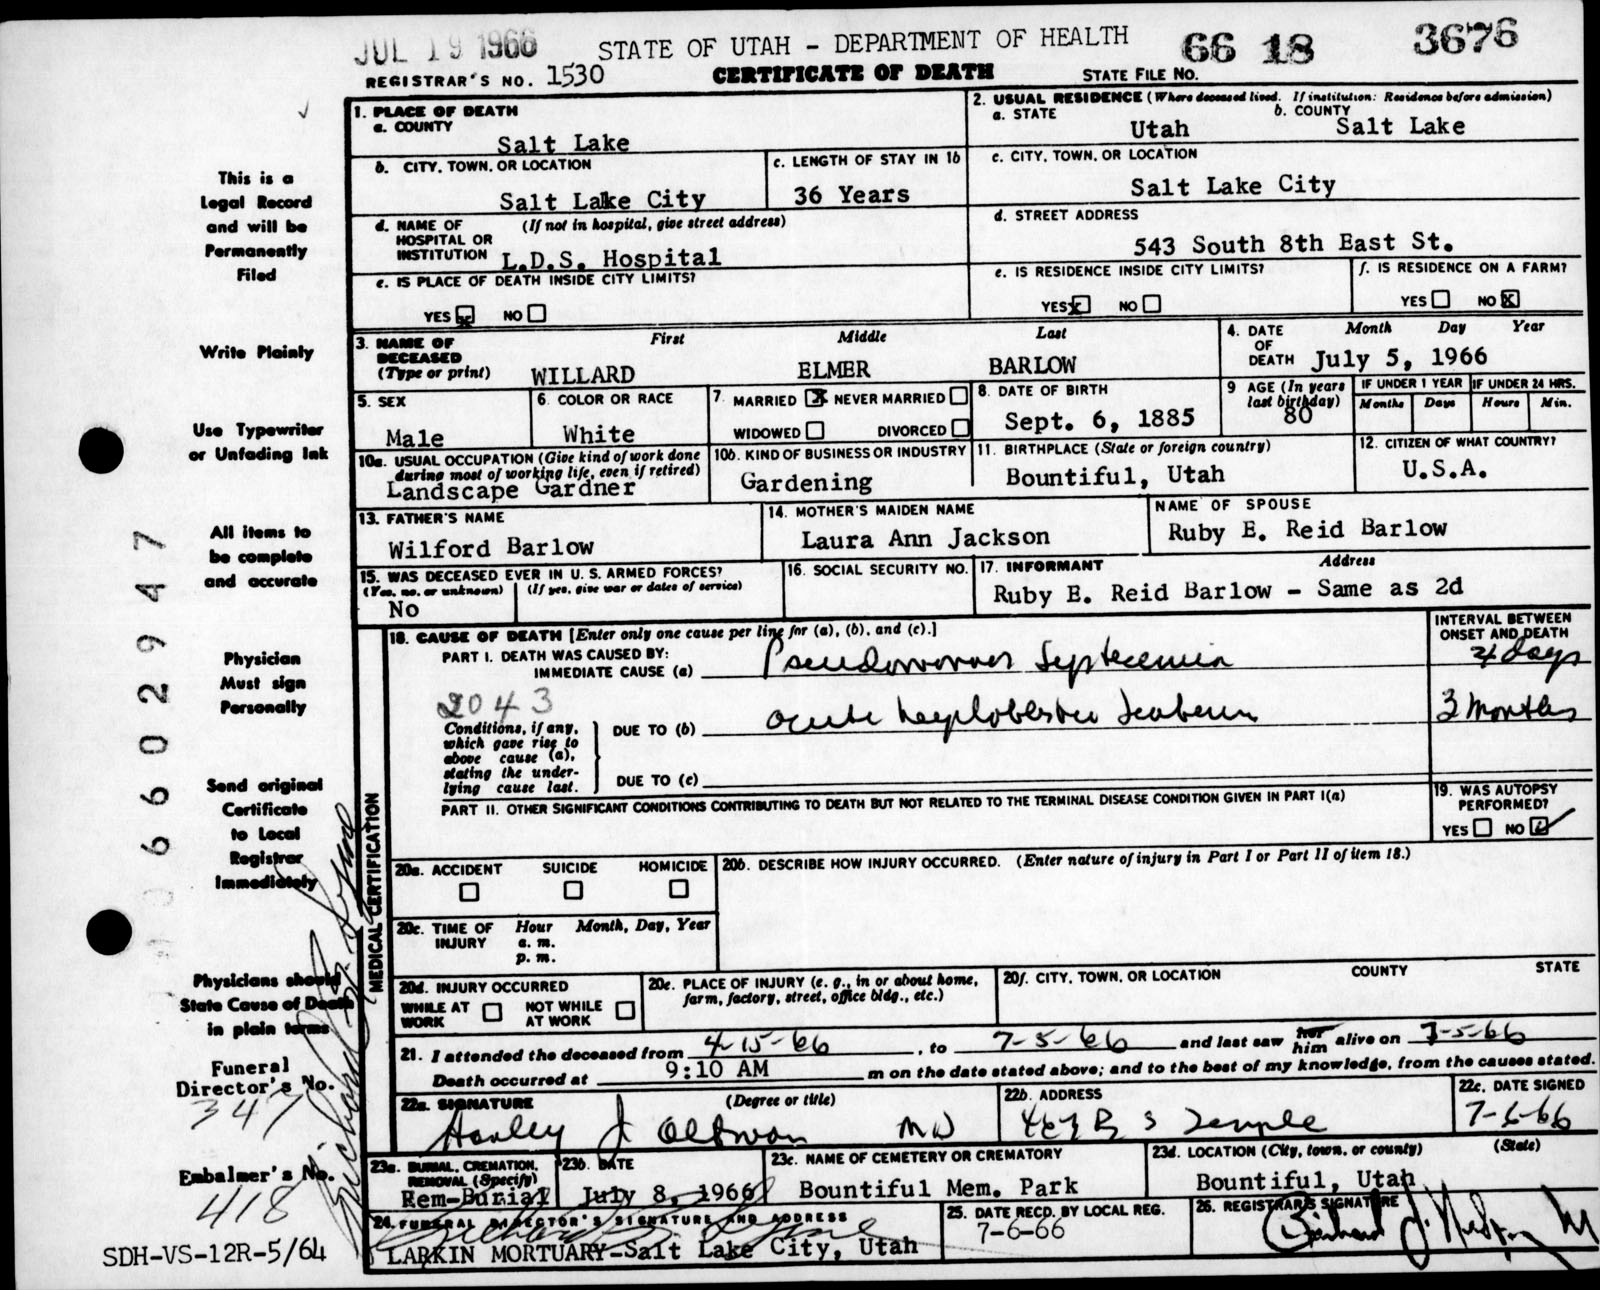 JUL 19 1966 STATE OF UTAH - DEPARTMENT OF HEALTH 66 18 3676
REGISTRAR'S NO. 1530 CERTIFICATE OF DEATH STATE FILE NO.
1. PLACE OF DEATH
a. COUNTY
Salt Lake
2. USUAL RESIDENCE (Where deceased lived. If institution: Residence before admission)
a. STATE b. COUNTY
Utah Salt Lake
b. CITY, TOWN, OR LOCATION
Salt Lake City
c. LENGTH OF STAY IN 1b
36 Years
c. CITY, TOWN, OR LOCATION
Salt Lake City
d. NAME OF HOSPITAL OR INSTITUTION (If not in hospital, give street address)
L.D.S. Hospital
d. STREET ADDRESS
543 South 8th East St.
e. IS PLACE OF DEATH INSIDE CITY LIMITS?
YES x NO
e. IS RESIDENCE INSIDE CITY LIMITS?
YES x NO
f. IS RESIDENCE ON A FARM?
YES NO x
3. NAME OF DECEASED (Type or print) First Middle Last
WILLARD ELMER BARLOW
4. DATE OF DEATH Month Day Year
July 5, 1966
5. SEX
Male
6. COLOR OR RACE
White
7. MARRIED x NEVER MARRIED
WIDOWED DIVORCED
8. DATE OF BIRTH
Sept. 6, 1885
9 AGE (In years last birthday)
80
IF UNDER 1 YEAR IF UNDER 24 HRS.
Months Days Hours Min.
10a. USUAL OCCUPATION (Give kind of work done during most of working life, even if retired)
Landscape Gardner
10b. KIND OF BUSINESS OR INDUSTRY
Gardening
11. BIRTHPLACE (State or foreign country)
Bountiful, Utah
12. CITIZEN OF WHAT COUNTRY?
U.S.A.
13. FATHER'S NAME
Wilford Barlow
14. MOTHER'S MAIDEN NAME
Laura Ann Jackson
NAME OF SPOUSE
Ruby E. Reid Barlow
15. WAS DECEASED EVER IN U. S. ARMED FORCES?
(Yes, no, or unknown) (If yes, give war or dates of service)
No
16. SOCIAL SECURITY NO.
17. INFORMANT Address
Ruby E. Reid Barlow - Same as 2d
MEDICAL CERTIFICATION
18. CAUSE OF DEATH [Enter only one cause per line for (a), (b), and (c).]
INTERVAL BETWEEN ONSET AND DEATH
PART I. DEATH WAS CAUSED BY:
IMMEDIATE CAUSE (a) Pseudomonas Septicemia
days
2043
Conditions, if any, which gave rise to above cause (a), stating the underlying cause last.
DUE TO (b) acute
3 months
DUE TO (c)
PART II. OTHER SIGNIFICANT CONDITIONS CONTRIBUTING TO DEATH BUT NOT RELATED TO THE TERMINAL DISEASE CONDITION GIVEN IN PART I(a)
19. WAS AUTOPSY PERFORMED?
YES NO ✓
20a. ACCIDENT SUICIDE HOMICIDE
20b. DESCRIBE HOW INJURY OCCURRED. (Enter nature of injury in Part I or Part II of item 18.)
20c. TIME OF INJURY Hour Month, Day, Year
a. m.
p. m.
20d. INJURY OCCURRED
WHILE AT WORK NOT WHILE AT WORK
20e. PLACE OF INJURY (e. g., in or about home, farm, factory, street, office bldg., etc.)
20f. CITY, TOWN, OR LOCATION COUNTY STATE
21. I attended the deceased from 4-15-66, to 7-5-66 and last saw her him alive on 7-5-66
Death occurred at 9:10 AM m on the date stated above; and to the best of my knowledge, from the causes stated.
22a. SIGNATURE (Degree or title)
Harley J MD
22b. ADDRESS
S Temple
22c. DATE SIGNED
7-6-66
23a. BURIAL, CREMATION, REMOVAL (Specify)
Rem-Burial
23b. DATE
July 8, 1966
23c. NAME OF CEMETERY OR CREMATORY
Bountiful Mem. Park
23d. LOCATION (City, town, or county) (State)
Bountiful, Utah
24. FUNERAL DIRECTOR'S SIGNATURE AND ADDRESS
LARKIN MORTUARY-Salt Lake City, Utah
25. DATE RECD. BY LOCAL REG.
7-6-66
26. REGISTRAR'S SIGNATURE
This is a
Legal Record
and will be
Permanently
Filed
Write Plainly
Use Typewriter
or Unfading Ink
All items to
be complete
and accurate
Physician
Must sign
Personally
Send original
Certificate
to Local
Registrar
Immediately
Physicians should
State Cause of Death
in plain terms
Funeral
Director's No.
347
Embalmer's No.
418
SDH-VS-12R-5/64
6602947